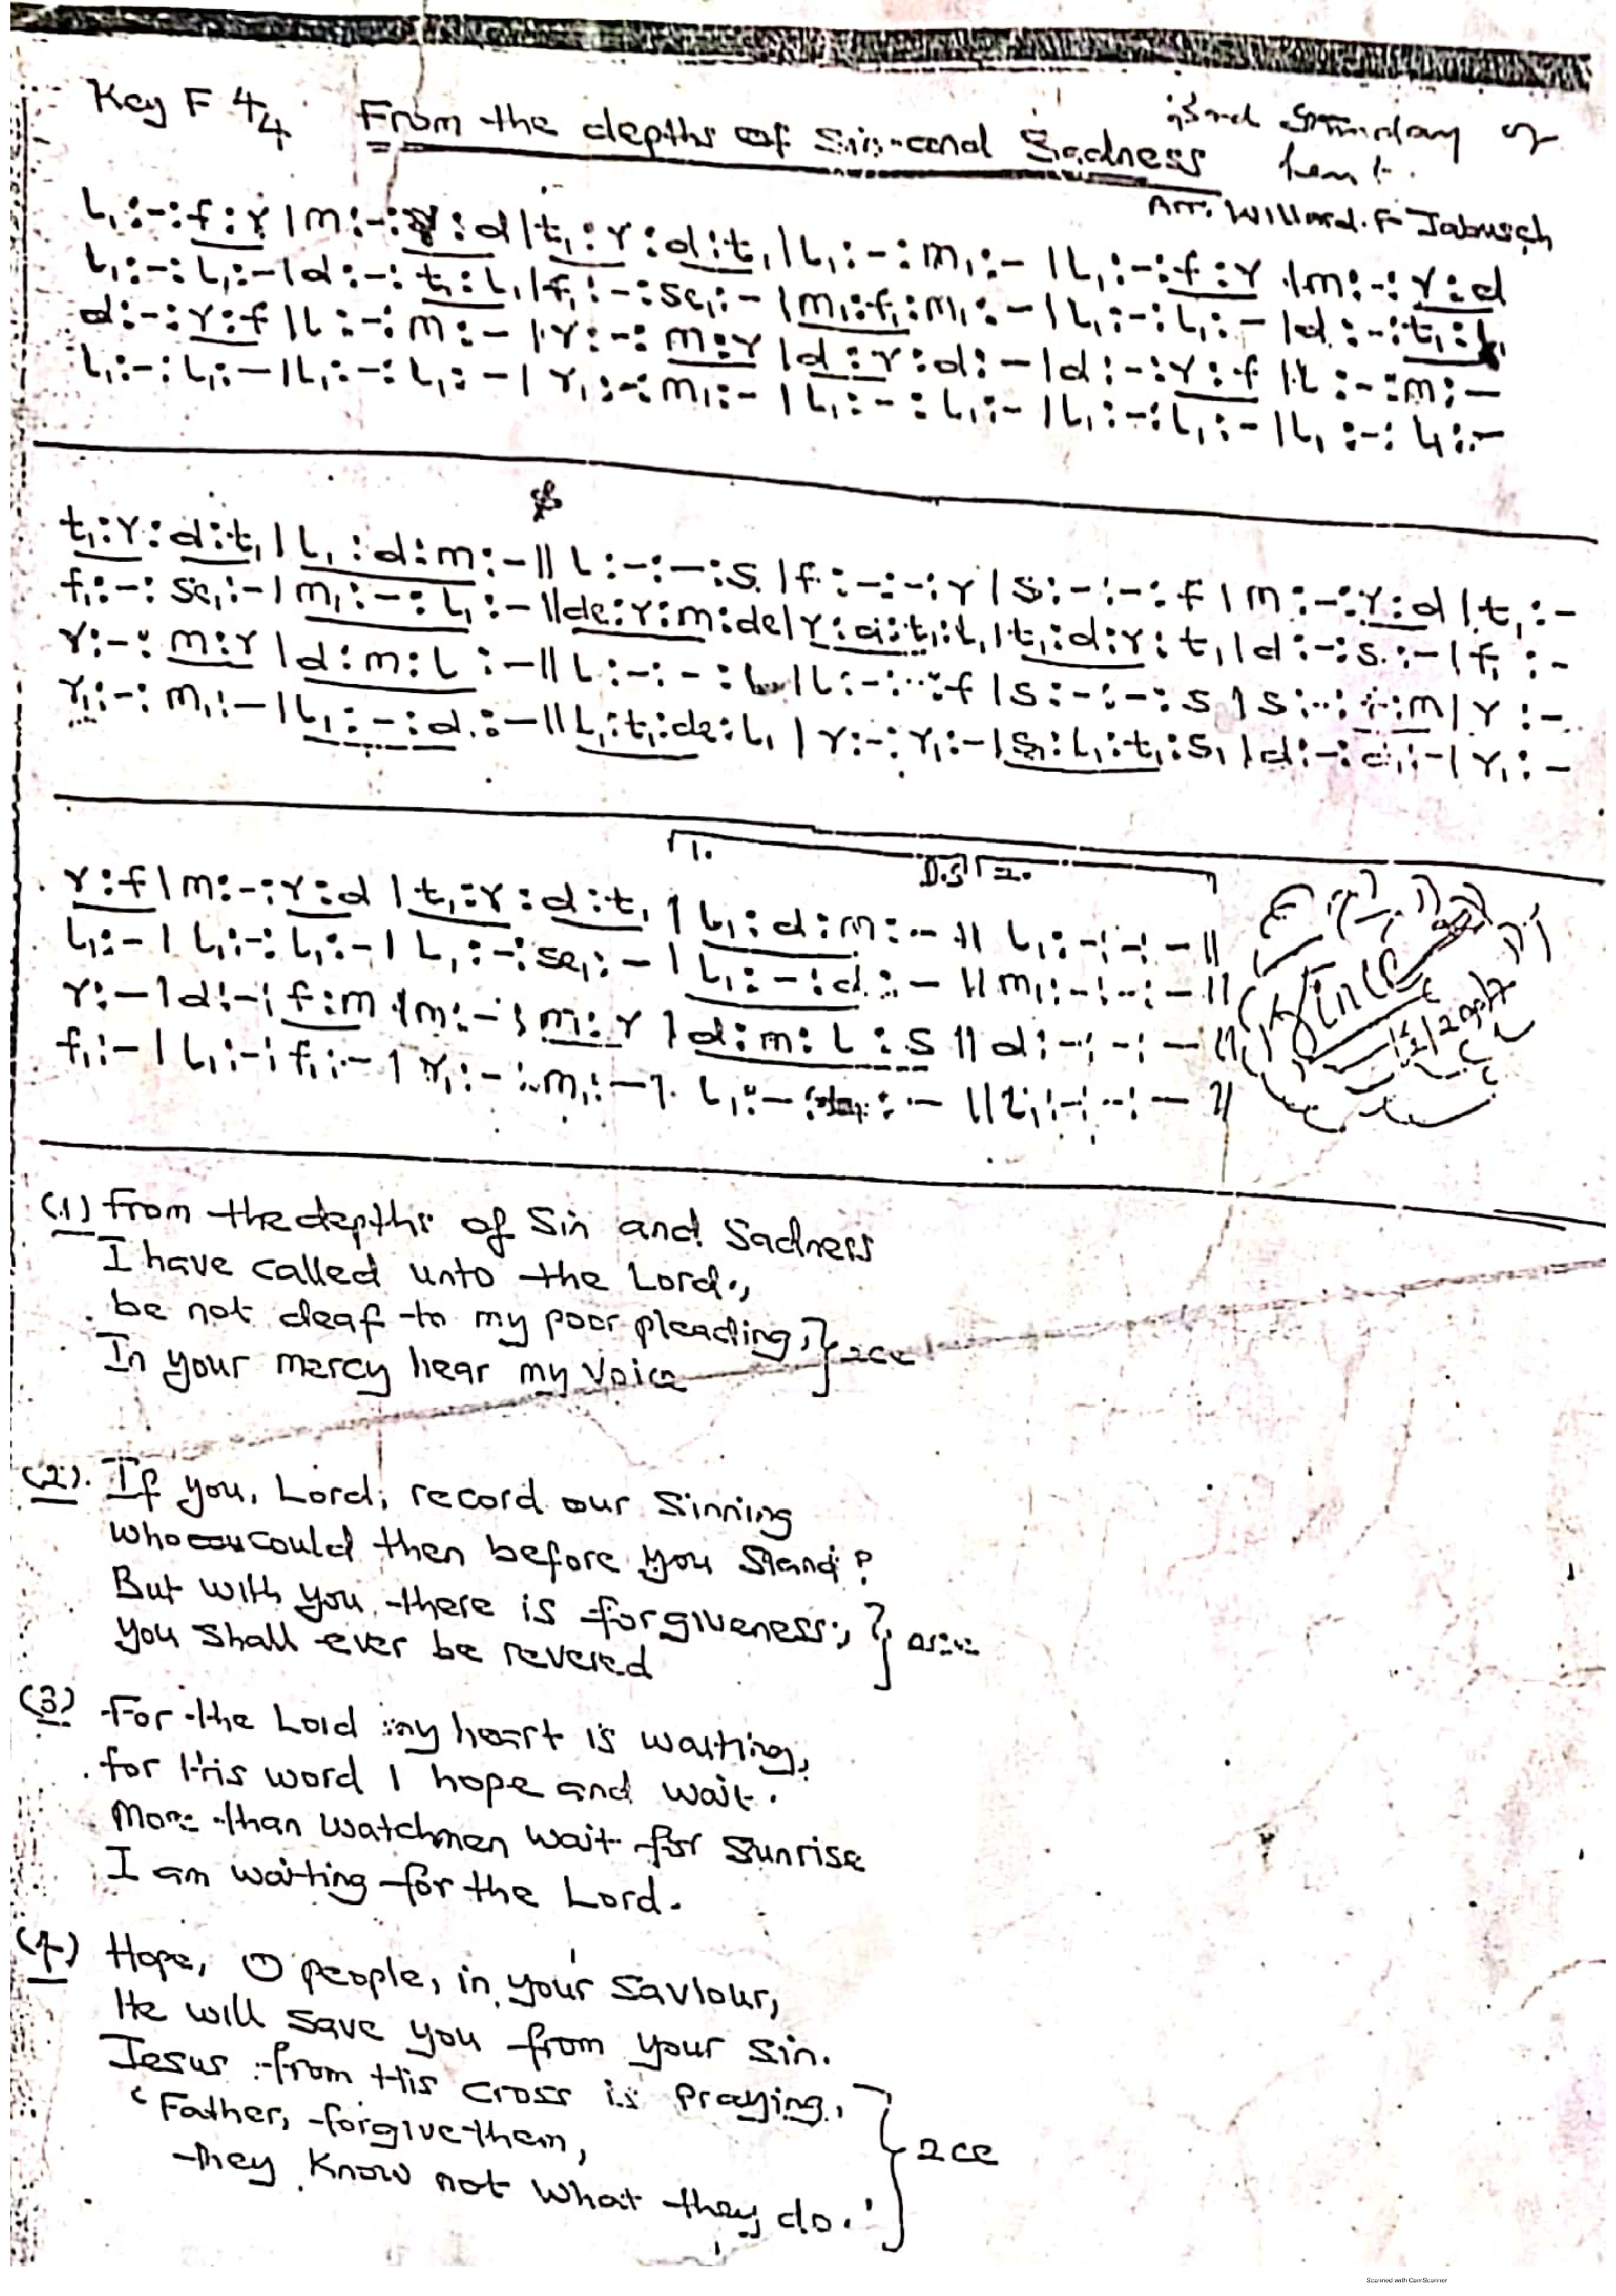 Key F 4/4 From the depths of Sin and Sadness 3rd Sunday of
Lent.
Arr. Willard. F Jabusch
l₁:-:f:r|m:-:r:d|t₁:r:d:t₁|l₁:-:m₁:-|l₁:-:f:r|m:-:r:d
l₁:-:l₁:-|d:-:t₁:l₁|f₁:-:se₁:-|m₁:f₁:m₁:-|l₁:-:l₁:-|d:-:t₁:l₁
d:-:r:f|l:-:m:-|r:-:m:r|d:r:d:-|d:-:r:f|l:-:m:-
l₁:-:l₁:-|l₁:-:l₁:-|r₁:-:m₁:-|l₁:-:l₁:-|l₁:-:l₁:-|l₁:-:l₁:-
t₁:r:d:t₁|l₁:d:m:-||l:-:-:s|f:-:-:r|s:-:-:f|m:-:r:d|t₁:-
f₁:-:se₁:-|m₁:-:l₁:-||de:r:m:de|r:d:t₁:l₁|t₁:d:r:t₁|d:-:s:-|f₁:-
r:-:m:r|d:m:l:-||l:-:-:l|l:-:-:f|s:-:-:s|s:-:-:m|r:-
r₁:-:m₁:-|l₁:-:d:-||l₁:t₁:de:l₁|r:-:r₁:-|s₁:l₁:t₁:s₁|d:-:d₁:-|r₁:-
1. D.S 2.
r:f|m:-:r:d|t₁:r:d:t₁|l₁:d:m:-||l₁:-:-:-||
l₁:-|l₁:-:l₁:-|l₁:-:se₁:-|l₁:-:d:-||m₁:-:-:-||
r:-|d:-:f:m|m:-:m:r|d:m:l:s||d:-:-:-||
f₁:-|l₁:-:f₁:-|r₁:-:m₁:-|l₁:-: :-||l₁:-:-:-||
(1) From the depths of Sin and Sadness
I have called unto the Lord.,
be not deaf to my poor pleading, } 2ce
In your mercy hear my voice
(2). If you, Lord, record our Sinning
Who could then before you Stand?
But with you, there is forgiveness, }
you Shall ever be revered
(3) For the Lord my heart is waiting,
for His word I hope and wait.
More than watchmen wait for Sunrise
I am waiting for the Lord.
(4) Hope, O people, in your Saviour,
He will save you from your Sin.
Jesus from His cross is praying,
'Father, forgive them, } 2ce
they know not what they do.'
Scanned with CamScanner